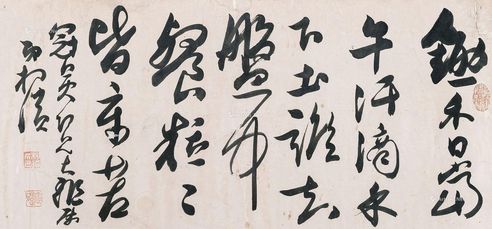 鋤禾日當
午汗滴禾
下土誰知
盤中
餐粒〻
皆辛苦
仁兄大